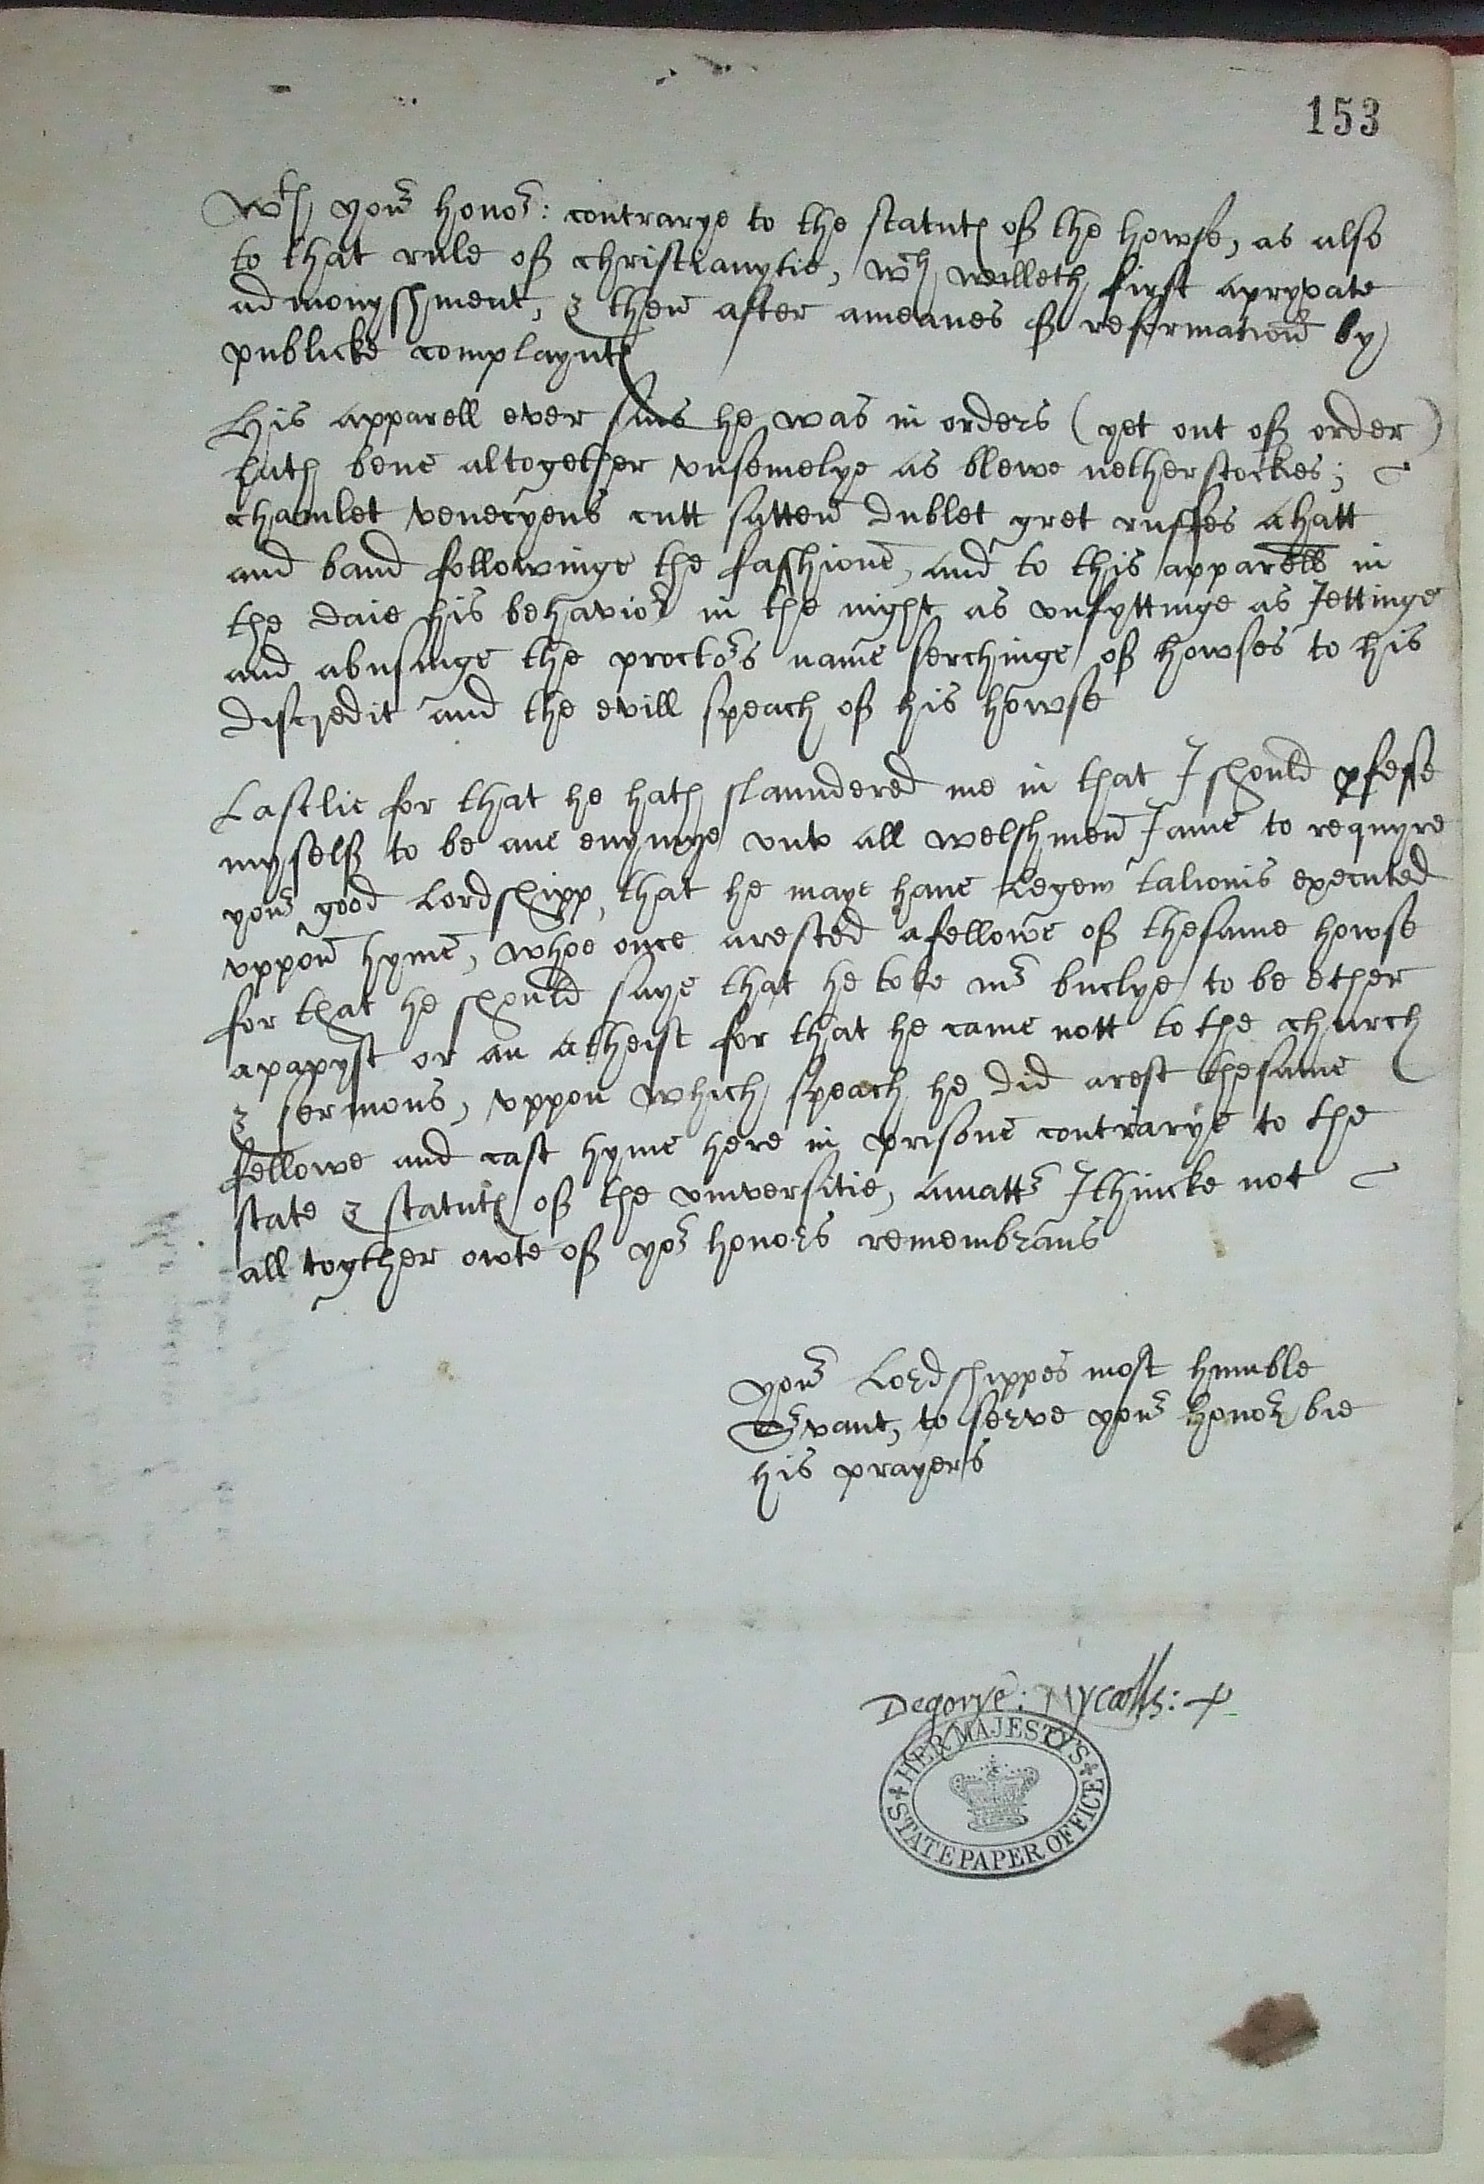 153
Wth your honor: contrarye to the statutes of the howse, as also
to that rule of christianytie, wch willeth first apryvate
admonyshment, & then after ameanes of reformation by
publicke complaynte
His apparell ever sins he was in orders (yet out of order)
hath bene altogether unsemelye as blewe netherstockes;
chamlet venecyens cutt satten dublet gret ruffes ahatt
and band followinge the fashione, and to this apparell in
the daie his behavior in the night as unfyttinge as Jettinge
and abusinge the proctors name serchinge of howses to his
discredit and the evill speach of his howse
Lastlie for that he hath slaundered me in that I should pfesse
myself to be ane enymye unto all welshmen I ame to requyre
your good Lordshipp, that he maye have Legem talionis executed
uppon hyme, whoe once arested afellowe of thesame howse
for that he should saye that he toke mr buclye to be ether
apapyst or an atheist for that he came nott to the church
& sermons, uppon which speach he did arest thesame
fellowe and cast hyme here in prisone contrarye to the
state & statutes of the universitie, amattr I thincke not
all togther owte of yor honors remembrans
your Lordshippes most humble
Srvant, to serve your honor bie
his prayers
Degorye: Nycolls:
HER MAJESTY'S
STATE PAPER OFFICE